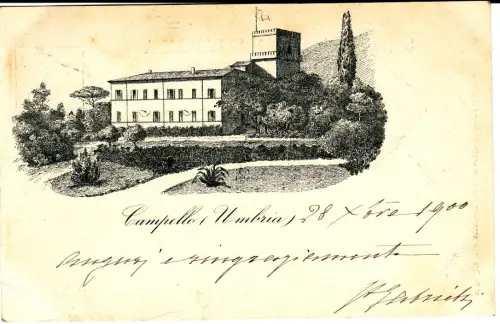 Campello (Umbria) 28 Xbre 1900
Auguri e ringraziamenti